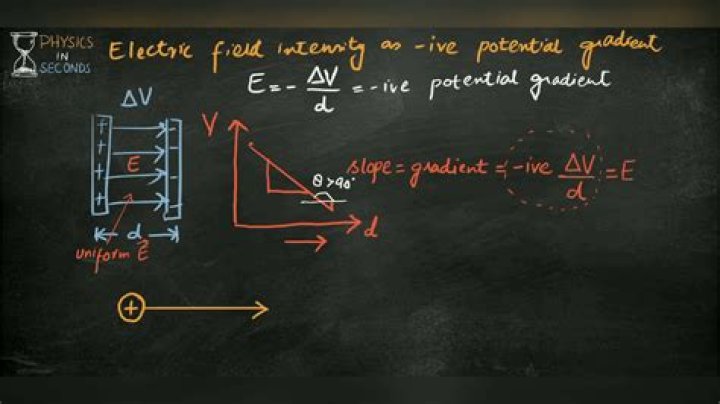 PHYSICS
IN
SECONDS
Electric field intensity as -ive potential gradient
E = - ΔV/d = -ive potential gradient
ΔV
+ -
+ -
E
+ -
+ -
d
uniform E⃗
V
θ>90°
d
slope = gradient = -ive ΔV/d = E
+